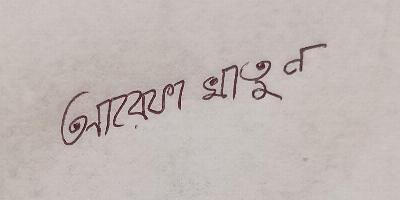 আরেফা খাতুন